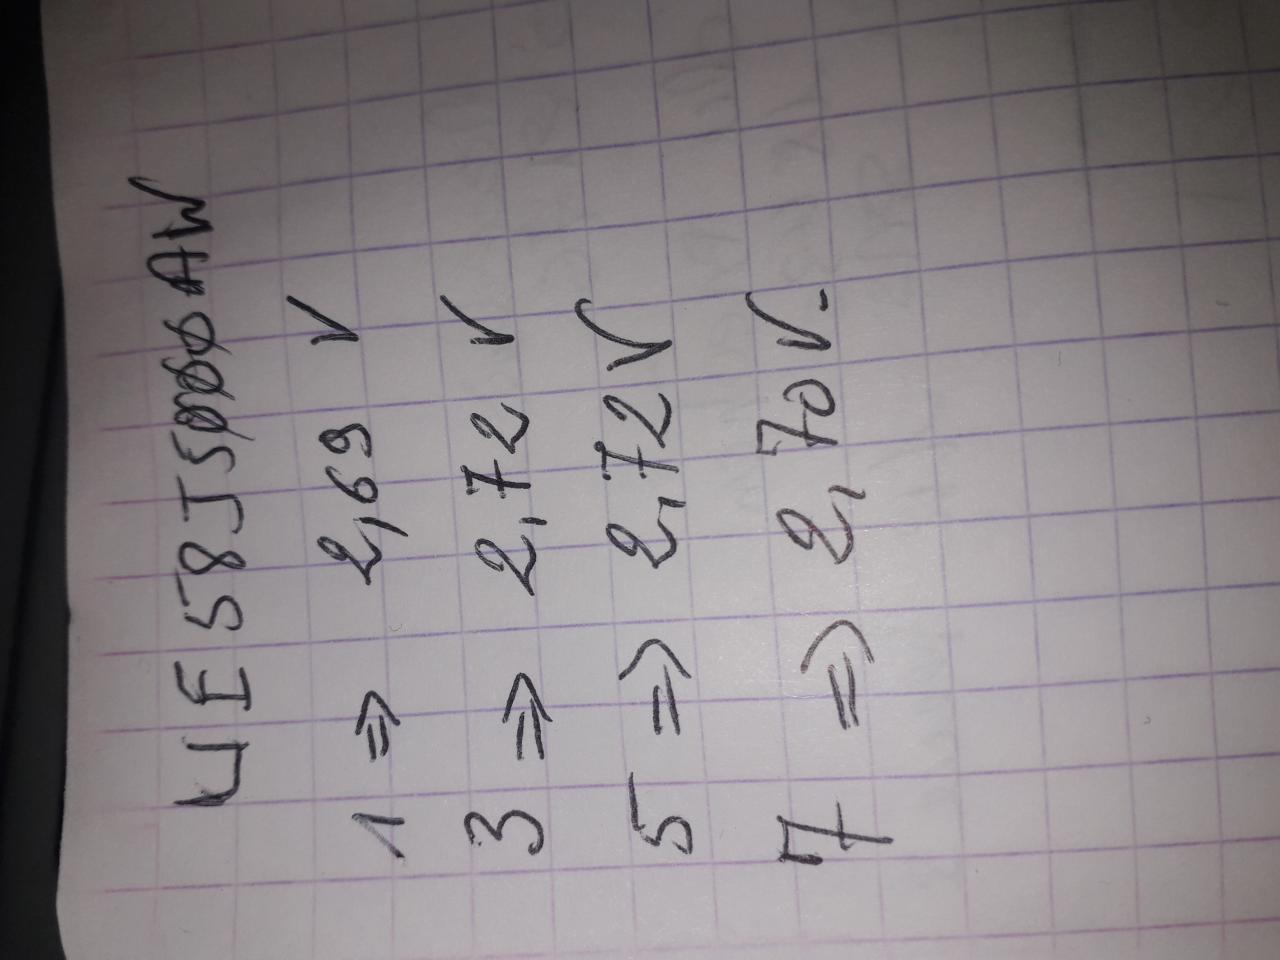 UE58J5000AW
1 ⇒ 2,69 V
3 ⇒ 2,72 V
5 ⇒ 2,72V
7 ⇒ 2,70V.